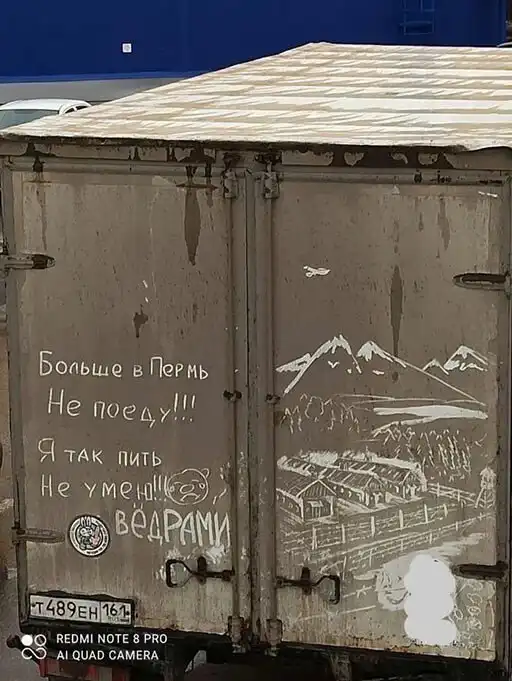 Больше в Пермь
Не поеду!!!
Я так пить
Не умею!!!
ВЁДРАМИ
Т489ЕН 161
REDMI NOTE 8 PRO
AI QUAD CAMERA